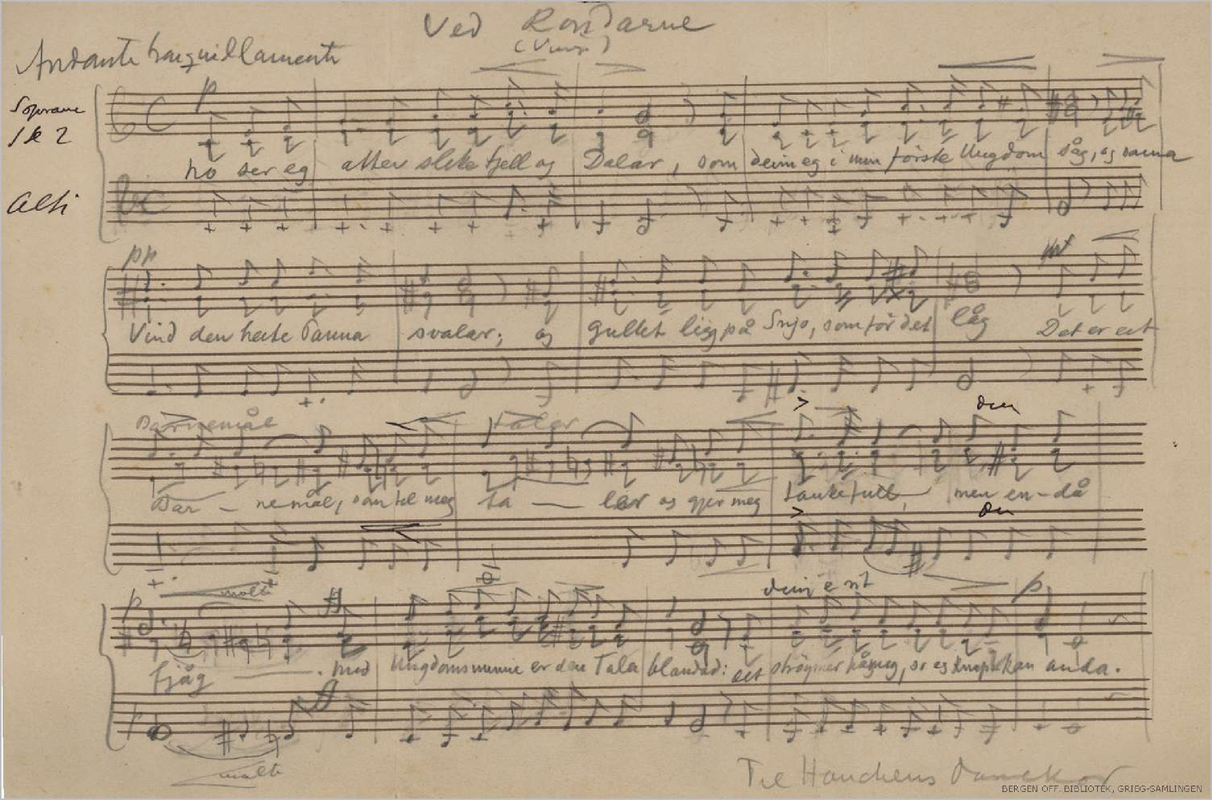 Ved Rondarne
(Vinje)
Andante tranquillamente
Soprane
1 & 2
p
no ser eg atter slike fjell og Dalar, som deim eg i min första Ungdom såg, og sama
Alti
pp
Vind den heite Panna svalar; og gullet ligg på Snjo, som för det låg
Det er eit
Barnemål
talar
den
Bar - nemål, som til meg ta — lar og gjer meg tankefull, men en-då
den
p
molto
deim e nt
p
fjåg med Ungdomsminne er den Tala blandad: det strøymer på meg, so eg knapt kan anda.
molto
Til Hanchens Damekor
BERGEN OFF. BIBLIOTEK, GRIEG-SAMLINGEN